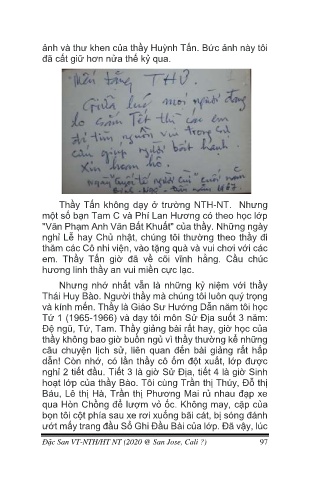 ảnh và thư khen của thầy Huỳnh Tấn. Bức ảnh này tôi
đã cất giữ hơn nửa thế kỷ qua.
Mến tặng THU
Giữa lúc mọi người đang
lo sắm Tết thì các em
đi tìm nguồn vui trong
giúp người bất hạnh.
Thầy Tấn không dạy ở trường NTH-NT. Nhưng
một số bạn Tam C và Phí Lan Hương có theo học lớp
"Văn Phạm Anh Văn Bất Khuất" của thầy. Những ngày
nghỉ Lễ hay Chủ nhật, chúng tôi thường theo thầy đi
thăm các Cô nhi viện, vào tặng quà và vui chơi với các
em. Thầy Tấn giờ đã về cõi vĩnh hằng. Cầu chúc
hương linh thầy an vui miền cực lạc.
Nhưng nhớ nhất vẫn là những kỷ niệm với thầy
Thái Huy Bào. Người thầy mà chúng tôi luôn quý trọng
và kính mến. Thầy là Giáo Sư Hướng Dẫn năm tôi học
Tứ 1 (1965-1966) và dạy tôi môn Sử Địa suốt 3 năm:
Đệ ngũ, Tứ, Tam. Thầy giảng bài rất hay, giờ học của
thầy không bao giờ buồn ngủ vì thầy thường kể những
câu chuyện lịch sử, liên quan đến bài giảng rất hấp
dẫn! Còn nhớ, có lần thầy cô ốm đột xuất, lớp được
nghỉ 2 tiết đầu. Tiết 3 là giờ Sử Địa, tiết 4 là giờ Sinh
hoạt lớp của thầy Bào. Tôi cùng Trần thị Thúy, Đỗ thị
Báu, Lê thị Hà, Trần thị Phương Mai rủ nhau đạp xe
qua Hòn Chồng để lượm vỏ ốc. Không may, cặp của
bọn tôi cột phía sau xe rơi xuống bãi cát, bị sóng đánh
ướt mấy trang đầu Sổ Ghi Đầu Bài của lớp. Đã vậy, lúc
Đặc San VT-NTH/HT NT (2020 @ San Jose, Cali ?) 97